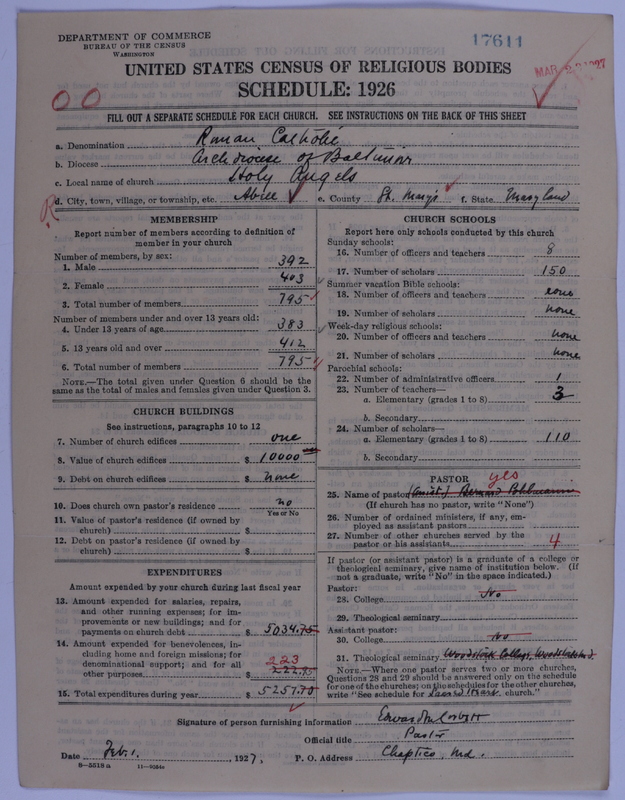 DEPARTMENT OF COMMERCE
BUREAU OF THE CENSUS
WASHINGTON
17611
UNITED STATES CENSUS OF RELIGIOUS BODIES
SCHEDULE: 1926
00
FILL OUT A SEPARATE SCHEDULE FOR EACH CHURCH. SEE INSTRUCTIONS ON THE BACK OF THIS SHEET
a. Denomination Roman Catholic
b. Diocese Archdiocese of Baltimore
c. Local name of church Holy Angels
d. City, town, village, or township, etc. Abell e. County St. Mary's f. State Maryland
R
MEMBERSHIP
Report number of members according to definition of member in your church
Number of members, by sex:
1. Male 392
2. Female 403
3. Total number of members 795
Number of members under and over 13 years old:
4. Under 13 years of age 383
5. 13 years old and over 412
6. Total number of members 795
NOTE.—The total given under Question 6 should be the
same as the total of males and females given under Question 3.
CHURCH BUILDINGS
See instructions, paragraphs 10 to 12
7. Number of church edifices one
8. Value of church edifices $ 10000
9. Debt on church edifices $ none
10. Does church own pastor's residence no
Yes or No
11. Value of pastor's residence (if owned by
church) $
12. Debt on pastor's residence (if owned by
church) $
EXPENDITURES
Amount expended by your church during last fiscal year
13. Amount expended for salaries, repairs,
and other running expenses; for im-
provements or new buildings; and for
payments on church debt $ 5034.75
14. Amount expended for benevolences, in-
cluding home and foreign missions; for
denominational support; and for all
223
other purposes $ 222.95
15. Total expenditures during year $ 5257.70
CHURCH SCHOOLS
Report here only schools conducted by this church
Sunday schools:
16. Number of officers and teachers 8
17. Number of scholars 150
Summer vacation Bible schools:
18. Number of officers and teachers none
19. Number of scholars none
Week-day religious schools:
20. Number of officers and teachers none
21. Number of scholars none
Parochial schools:
22. Number of administrative officers 1
23. Number of teachers—
a. Elementary (grades 1 to 8) 3
b. Secondary
24. Number of scholars—
a. Elementary (grades 1 to 8) 110
b. Secondary
PASTOR yes
25. Name of pastor (Assist.) Bernard
(If church has no pastor, write "None")
26. Number of ordained ministers, if any, em-
ployed as assistant pastors
27. Number of other churches served by the
pastor or his assistants 4
If pastor (or assistant pastor) is a graduate of a college or
theological seminary, give name of institution below. (If
not a graduate, write "No" in the space indicated.)
Pastor:
28. College No
29. Theological seminary
Assistant pastor:
30. College No
31. Theological seminary Woodstock College, Woodstock Md.
NOTE.—Where one pastor serves two or more churches,
Questions 28 and 29 should be answered only on the schedule
for one of the churches; on the schedules for the other churches,
write "See schedule for Sacred Heart church."
Signature of person furnishing information
Official title Pastor
Date Feb. 1. , 1927, P. O. Address Chaptico, Md.
8—5518 a